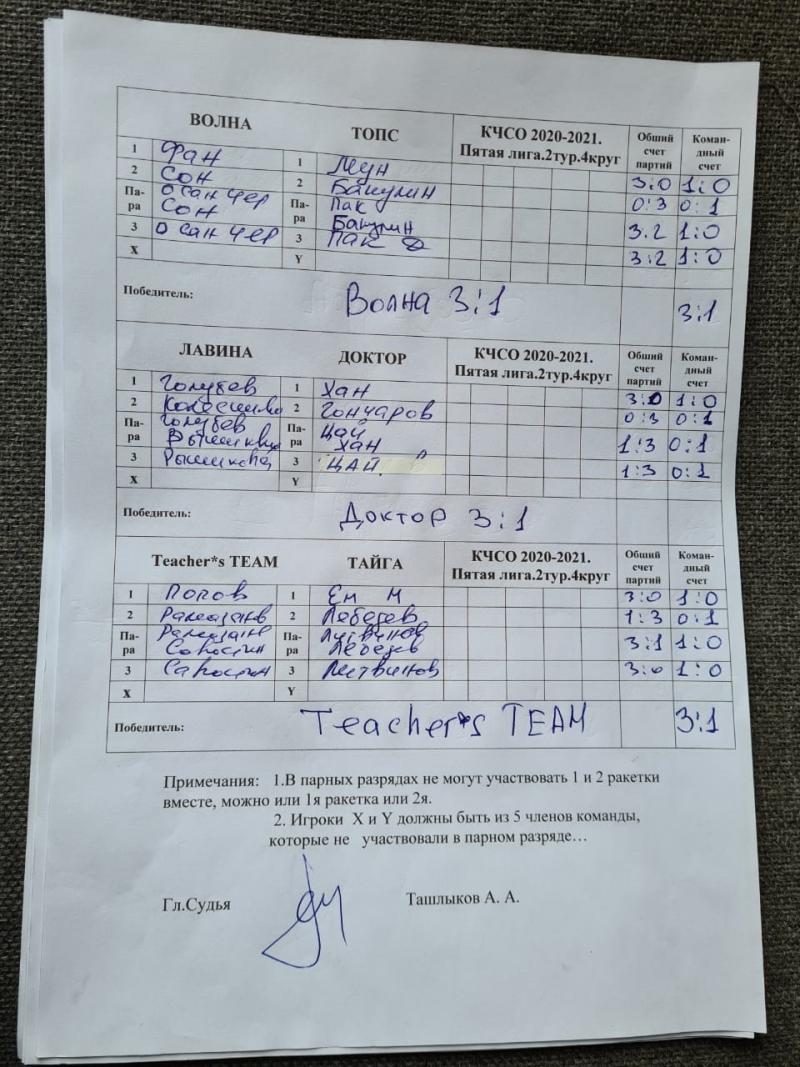 ВОЛНА ТОПС КЧСО 2020-2021. Общий Коман-
Пятая лига.2тур.4круг счет дный
партий счет
1 Фан 1 Мун 3:0 1:0
2 Сон 2 Бакулин 0:3 0:1
Па- Осанчер Па- Пак
ра Сон ра Бакулин 3:2 1:0
3 Осанчер 3 Пак 3:2 1:0
X Y
Победитель: Волна 3:1 3:1
ЛАВИНА ДОКТОР КЧСО 2020-2021. Общий Коман-
Пятая лига.2тур.4круг счет дный
партий счет
1 Голубев 1 Хан 3:0 1:0
2 2 Гончаров 0:3 0:1
Па- Голубев Па- Цай
ра ра Хан 1:3 0:1
3 3 ЦАЙ 1:3 0:1
X Y
Победитель: Доктор 3:1
Teacher*s TEAM ТАЙГА КЧСО 2020-2021. Общий Коман-
Пятая лига.2тур.4круг счет дный
партий счет
1 Попов 1 Ен М 3:0 1:0
2 2 Лебедев 1:3 0:1
Па- Па- Литвинов
ра Савостин ра Лебедев 3:1 1:0
3 Савостин 3 Литвинов 3:0 1:0
X Y
Победитель: Teacher*s TEAM 3:1
Примечания: 1.В парных разрядах не могут участвовать 1 и 2 ракетки
вместе, можно или 1я ракетка или 2я.
2. Игроки X и Y должны быть из 5 членов команды,
которые не участвовали в парном разряде…
Гл.Судья Ташлыков А. А.